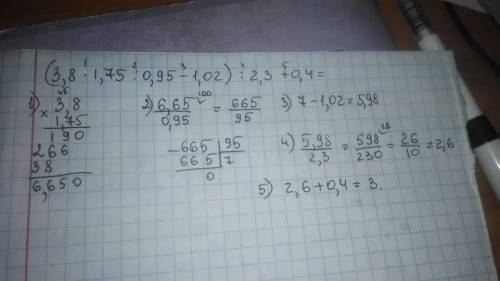 (3,8 · 1,75 : 0,95 - 1,02) : 2,3 + 0,4 =
1) × 3,8
1,75
190
266
38
6,650
2) 6,65 / 0,95 = 665 / 95
100
- 665 | 95
665 | 7
0
3) 7 - 1,02 = 5,98
4) 5,98 / 2,3 = 598 / 230 = 26 / 10 = 2,6
5) 2,6 + 0,4 = 3.